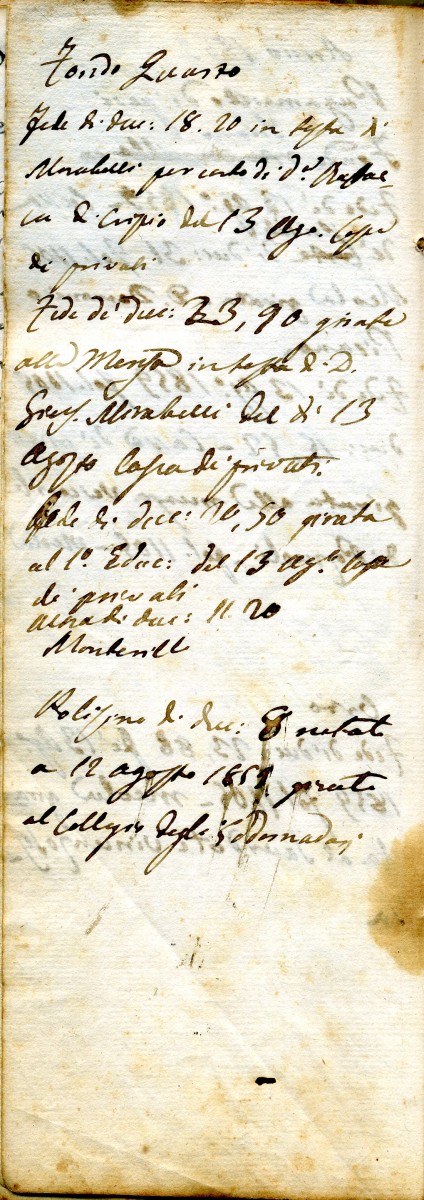 Fondo Quarto
Fede di duc: 18. 20 in testa di
Morabelli per conto di d.a Raffae-
la di Crispio del 13 Ago. Cassa
di privati
Fede di duc: 23, 90 girata
alla Mensa in testa di D.
Morabelli del di 13
Agosto Cassa di privati.
Fede di duc: 70, 50 girata
al 1º Educ: del 13 Ago Cassa
di privati
altra di duc: 11. 20
di duc: 8 notato
a 12 agosto 1859 girato
al Collegio degli Eddomadarj